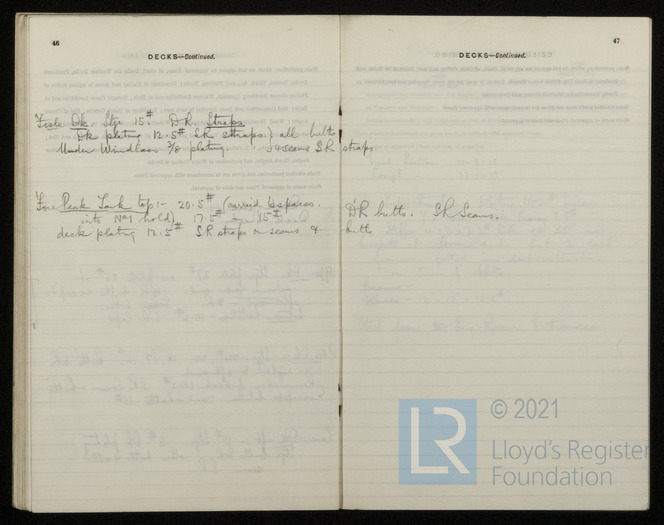 46
DECKS—Continued.
Fosle Dk. Stgr 15# DR. Straps
Dk plating 12.5# SR straps } all butts
Under Windlass 3/8 plating. } & seams SR straps.
Fore Peak Tank top:- 20.5# (carried 6 spaces
into No1 hold) 17.5# & 15# DR butts. SR Seams.
deck plating 12.5# SR straps on seams & butts
47
DECKS—Continued.
LR
© 2021
Lloyd's Register
Foundation